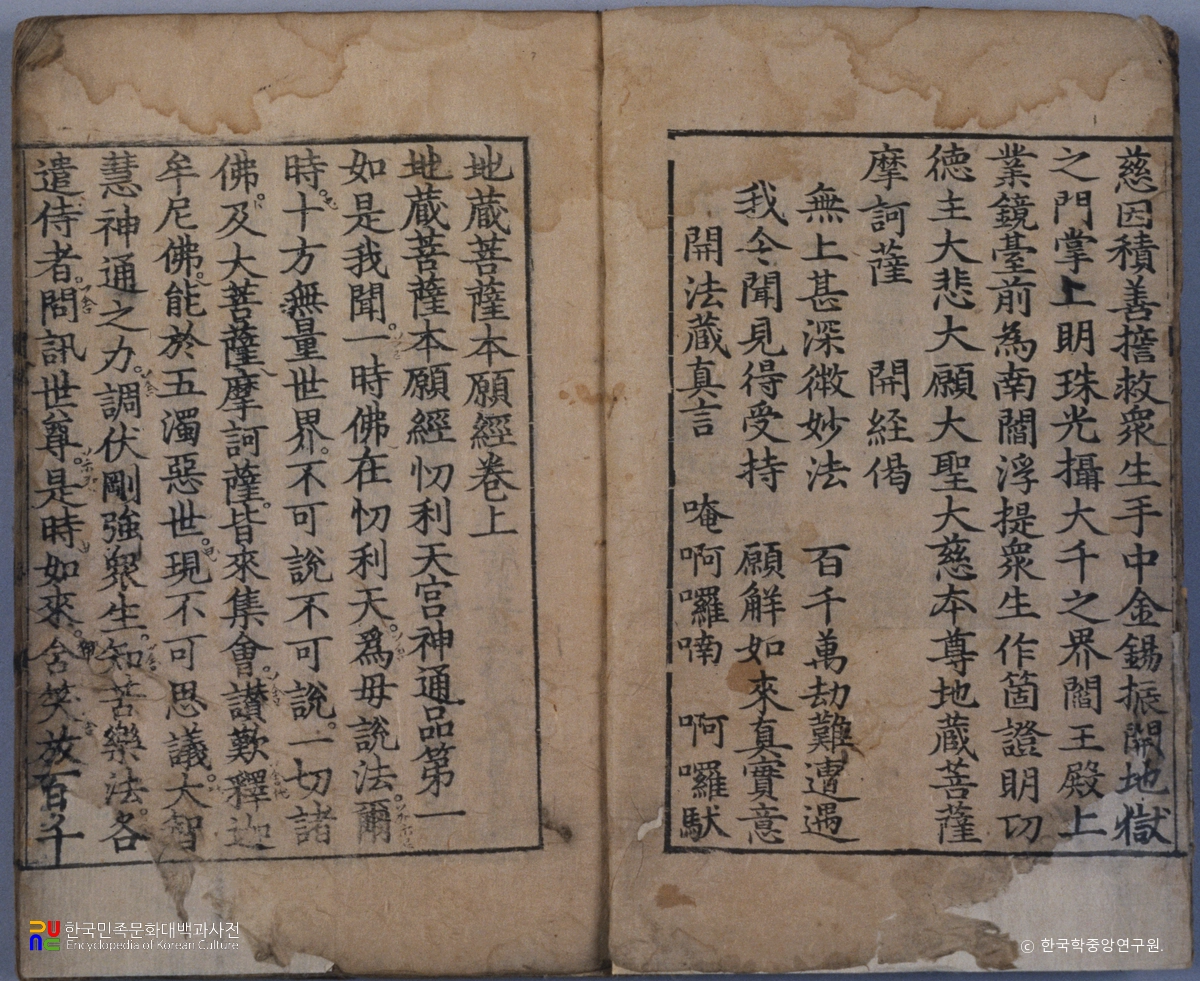 慈因積善擔救衆生手中金錫振開地獄
之門掌上明珠光攝大千之界閻王殿上
業鏡臺前為南閻浮提衆生作箇證明功
德主大悲大願大聖大慈本尊地蔵菩薩
摩訶薩 開経偈
無上甚深微妙法 百千萬劫難遭遇
我今聞見得受持 願解如來真實意
開法蔵真言 唵啊囉喃 啊囉馱
地蔵菩薩本願經卷上
地蔵菩薩本願經忉利天宮神通品第一
如是我聞一時佛在忉利天爲母說法爾
時十方無量世界不可說不可說一切諸
佛及大菩薩摩訶薩皆來集會讃歎釋迦
牟尼佛能於五濁惡世現不可思議大智
慧神通之力調伏剛強衆生知苦樂法各
遣侍者問訊世尊是時如來含笑放百千
한국민족문화대백과사전
Encyclopedia of Korean Culture
© 한국학중앙연구원.